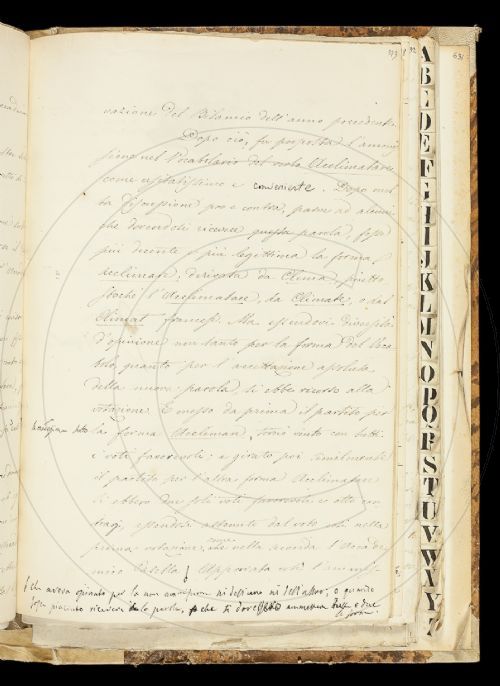 573
92
631
vazione del Bilancio dell'anno precedente.
Dopo ciò, fu proposta l'ammis
sione nel Vocabolario del verbo Acclimatare
come usitatissimo e conveniente. Dopo mol
ta discussione pro e contro, parve ad alcuni
che dovendosi ricevere questa parola, fosse
più decente e più legittima la forma
Acclimare, derivata da Clima, piuttosto
stochè l'Acclimatare, da Climate, o dal
Climat francese. Ma essendovi diversità
d'opinione non tanto per la forma del Voca
bolo quanto per l'accettazione assoluta
della nuova parola, si ebbe ricorso alla
votazione. E messo da prima il partito per
la forma Acclimare, tornò vinto con tutti
i voti favorevoli: e girato poi similmente
il partito per l'altra forma Acclimatare
si ebbero due soli voti favorevoli e otto con
trarj, essendosi astenuto dal voto sì nella
prima votazione, che nella seconda l'Accade
mico Casella
che aveva opinato per la non accettazione nè dell'una nè dell'altra; o quando
fosse piaciuto ricevere la parola, che si dovesse ammettere
A
B
C
D
E
F
G
H
I
J
K
L
M
N
O
P
Q
R
S
T
U
V
W
X
Y
Z